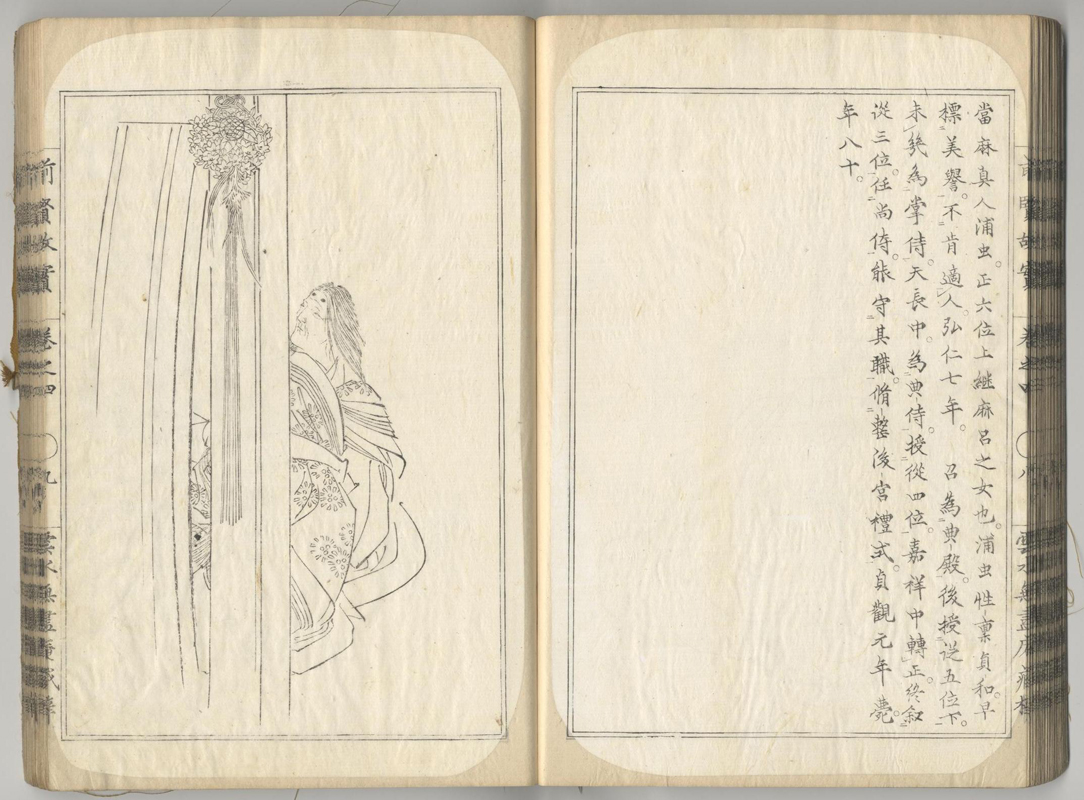 當麻真人浦虫。正六位上継麻呂之女也。浦虫性稟貞和。早
標美譽。不肯適人。弘仁七年。召為典殿。後授従五位下。
未幾為掌侍。天長中為典侍。授從四位。嘉祥中轉正。終叙
從三位。任尚侍。能守其職。脩整後宮禮式。貞觀元年薨。
年八十。
前賢故實 卷之四 九
前賢故實 卷之四 八 雲水無盡庵藏